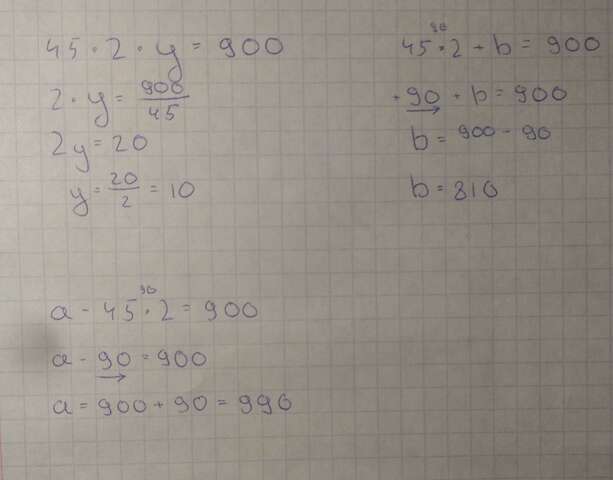 45 · 2 · y = 900
2 · y = 900/45
2y = 20
y = 20/2 = 10
90
45 · 2 + b = 900
+ 90 + b = 900
b = 900 - 90
b = 810
90
a - 45 · 2 = 900
a - 90 = 900
a = 900 + 90 = 990